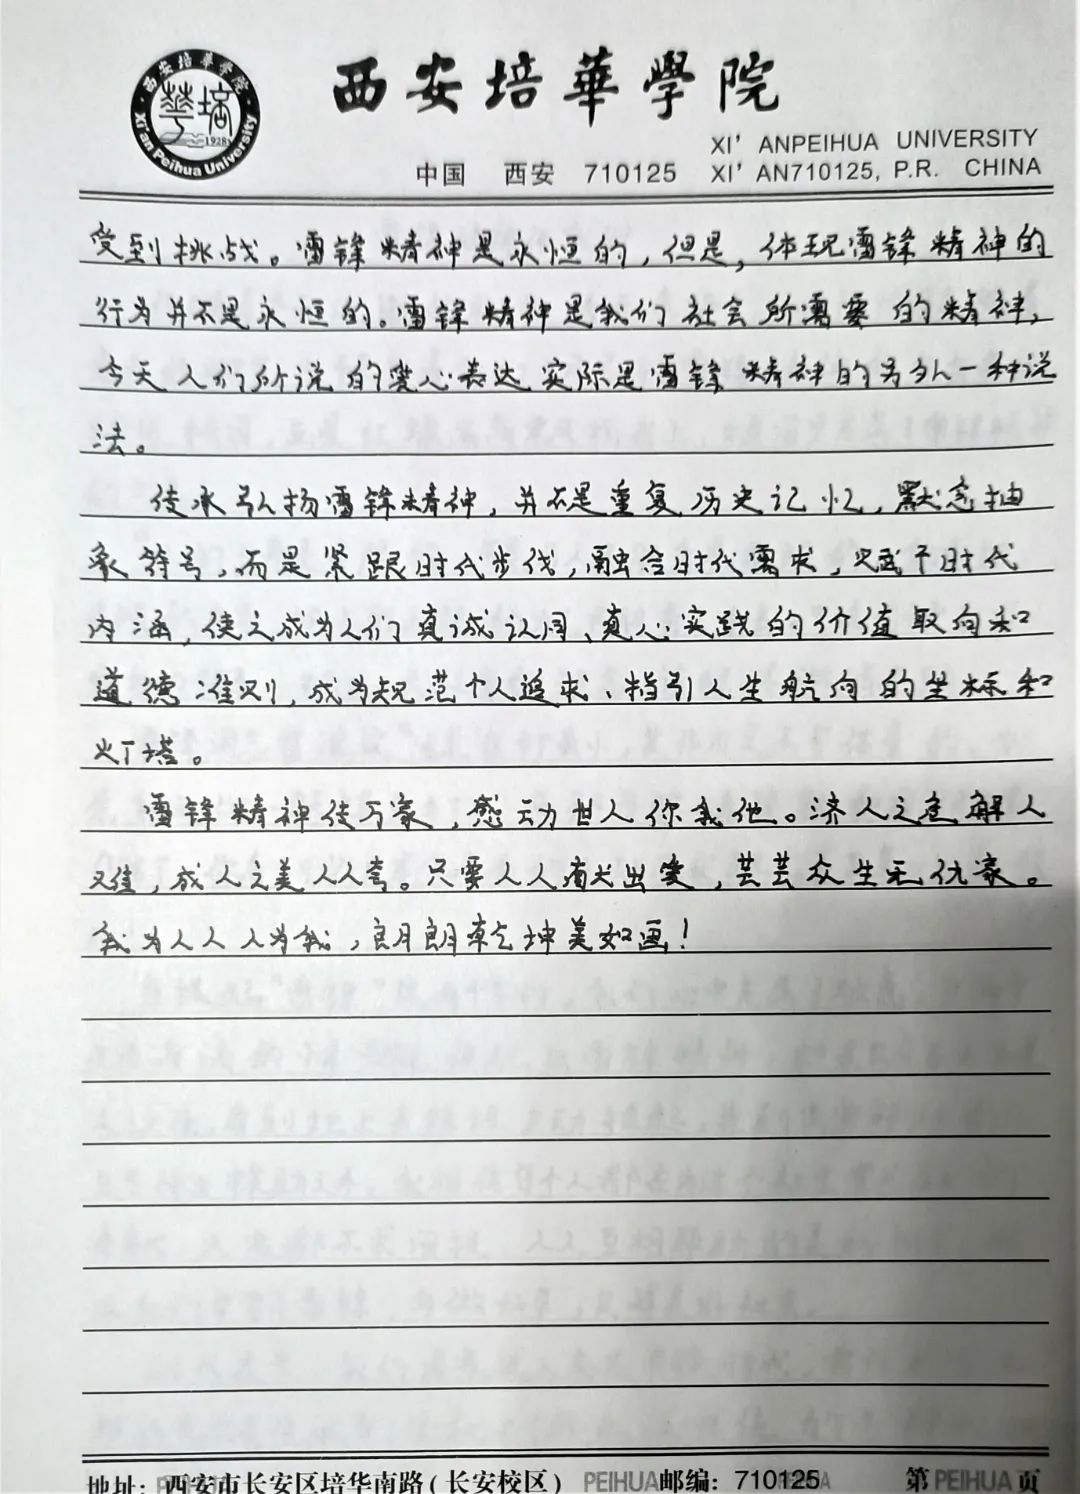 西安培華學院
西安培華學院
華培
1928
Xi'an Peihua University
XI' ANPEIHUA UNIVERSITY
中国 西安 710125 XI' AN710125, P.R. CHINA
受到挑战。雷锋精神是永恒的，但是，体现雷锋精神的
行为并不是永恒的。雷锋精神是我们社会所需要的精神，
今天人们所说的爱心表达实际是雷锋精神的另外一种说
法。
传承弘扬雷锋精神，并不是重复历史记忆，默念抽
象符号，而是紧跟时代步伐，融合时代需求，赋予时代
内涵，使之成为人们真诚认同、真心实践的价值取向和
道德准则，成为规范个人追求、指引人生航向的坐标和
灯塔。
雷锋精神传万家，感动世人你我他。济人之危解人
难，成人之美人人夸。只要人人献出爱，芸芸众生无仇家。
我为人人人为我，朗朗乾坤美如画！
地址：西安市长安区培华南路（长安校区） PEIHUA 邮编：710125 第 PEIHUA 页